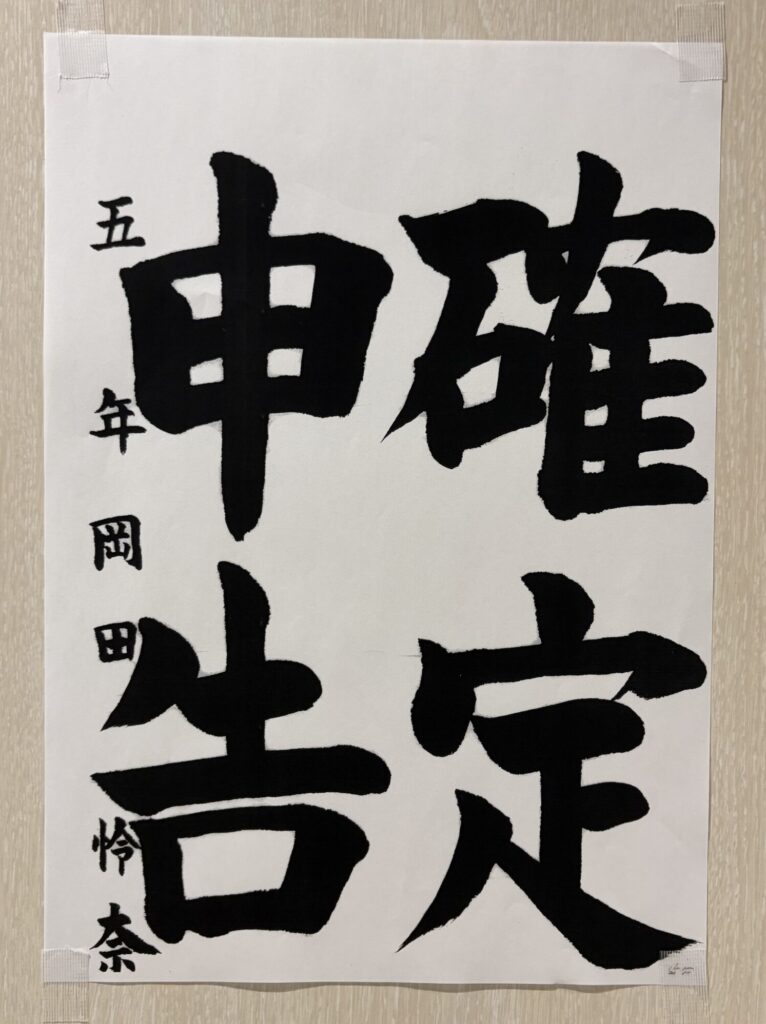 確定
申告
五年 岡田怜奈